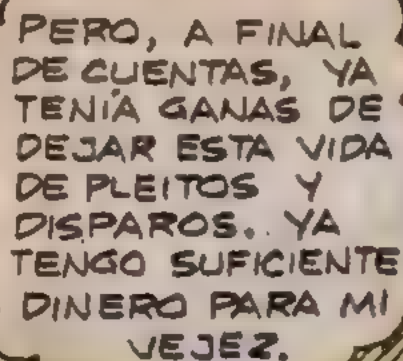 PERO, A FINAL
DE CUENTAS, YA
TENÍA GANAS DE
DEJAR ESTA VIDA
DE PLEITOS Y
DISPAROS.. YA
TENGO SUFICIENTE
DINERO PARA MI
VEJEZ.